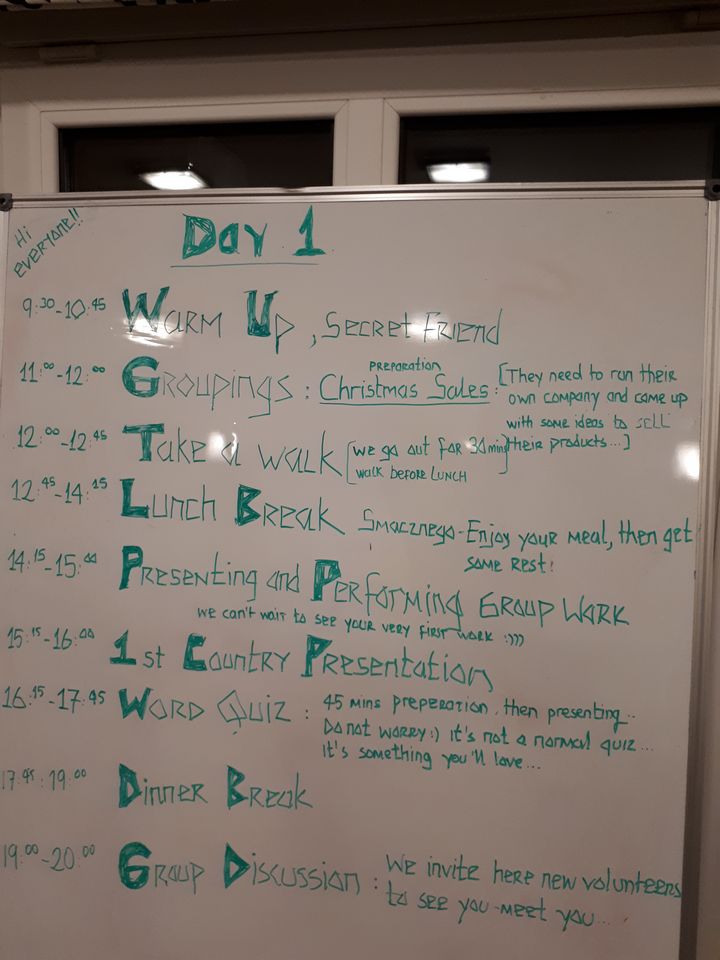 Hi everyone!!
Day 1
9:30-10:45 Warm Up, Secret Friend
11:00-12:00 Groupings : Preparation Christmas Sales : [They need to run their own company and came up with some ideas to sell their products...]
12:00-12:45 Take a walk [we go out for 30 mins walk before Lunch]
12:45-14:15 Lunch Break Smacznego - Enjoy your meal, then get some rest!
14:15-15:00 Presenting and Performing Group Work
we can't wait to see your very first work :)))
15:15-16:00 1st Country Presentation
16:15-17:45 Word Quiz : 45 mins preperation, then presenting...
Do not worry:) it's not a normal quiz...
It's something you'll love...
17:45:19:00 Dinner Break
19:00-20:00 Group Discussion : We invite here new volunteers
to see you-meet you...